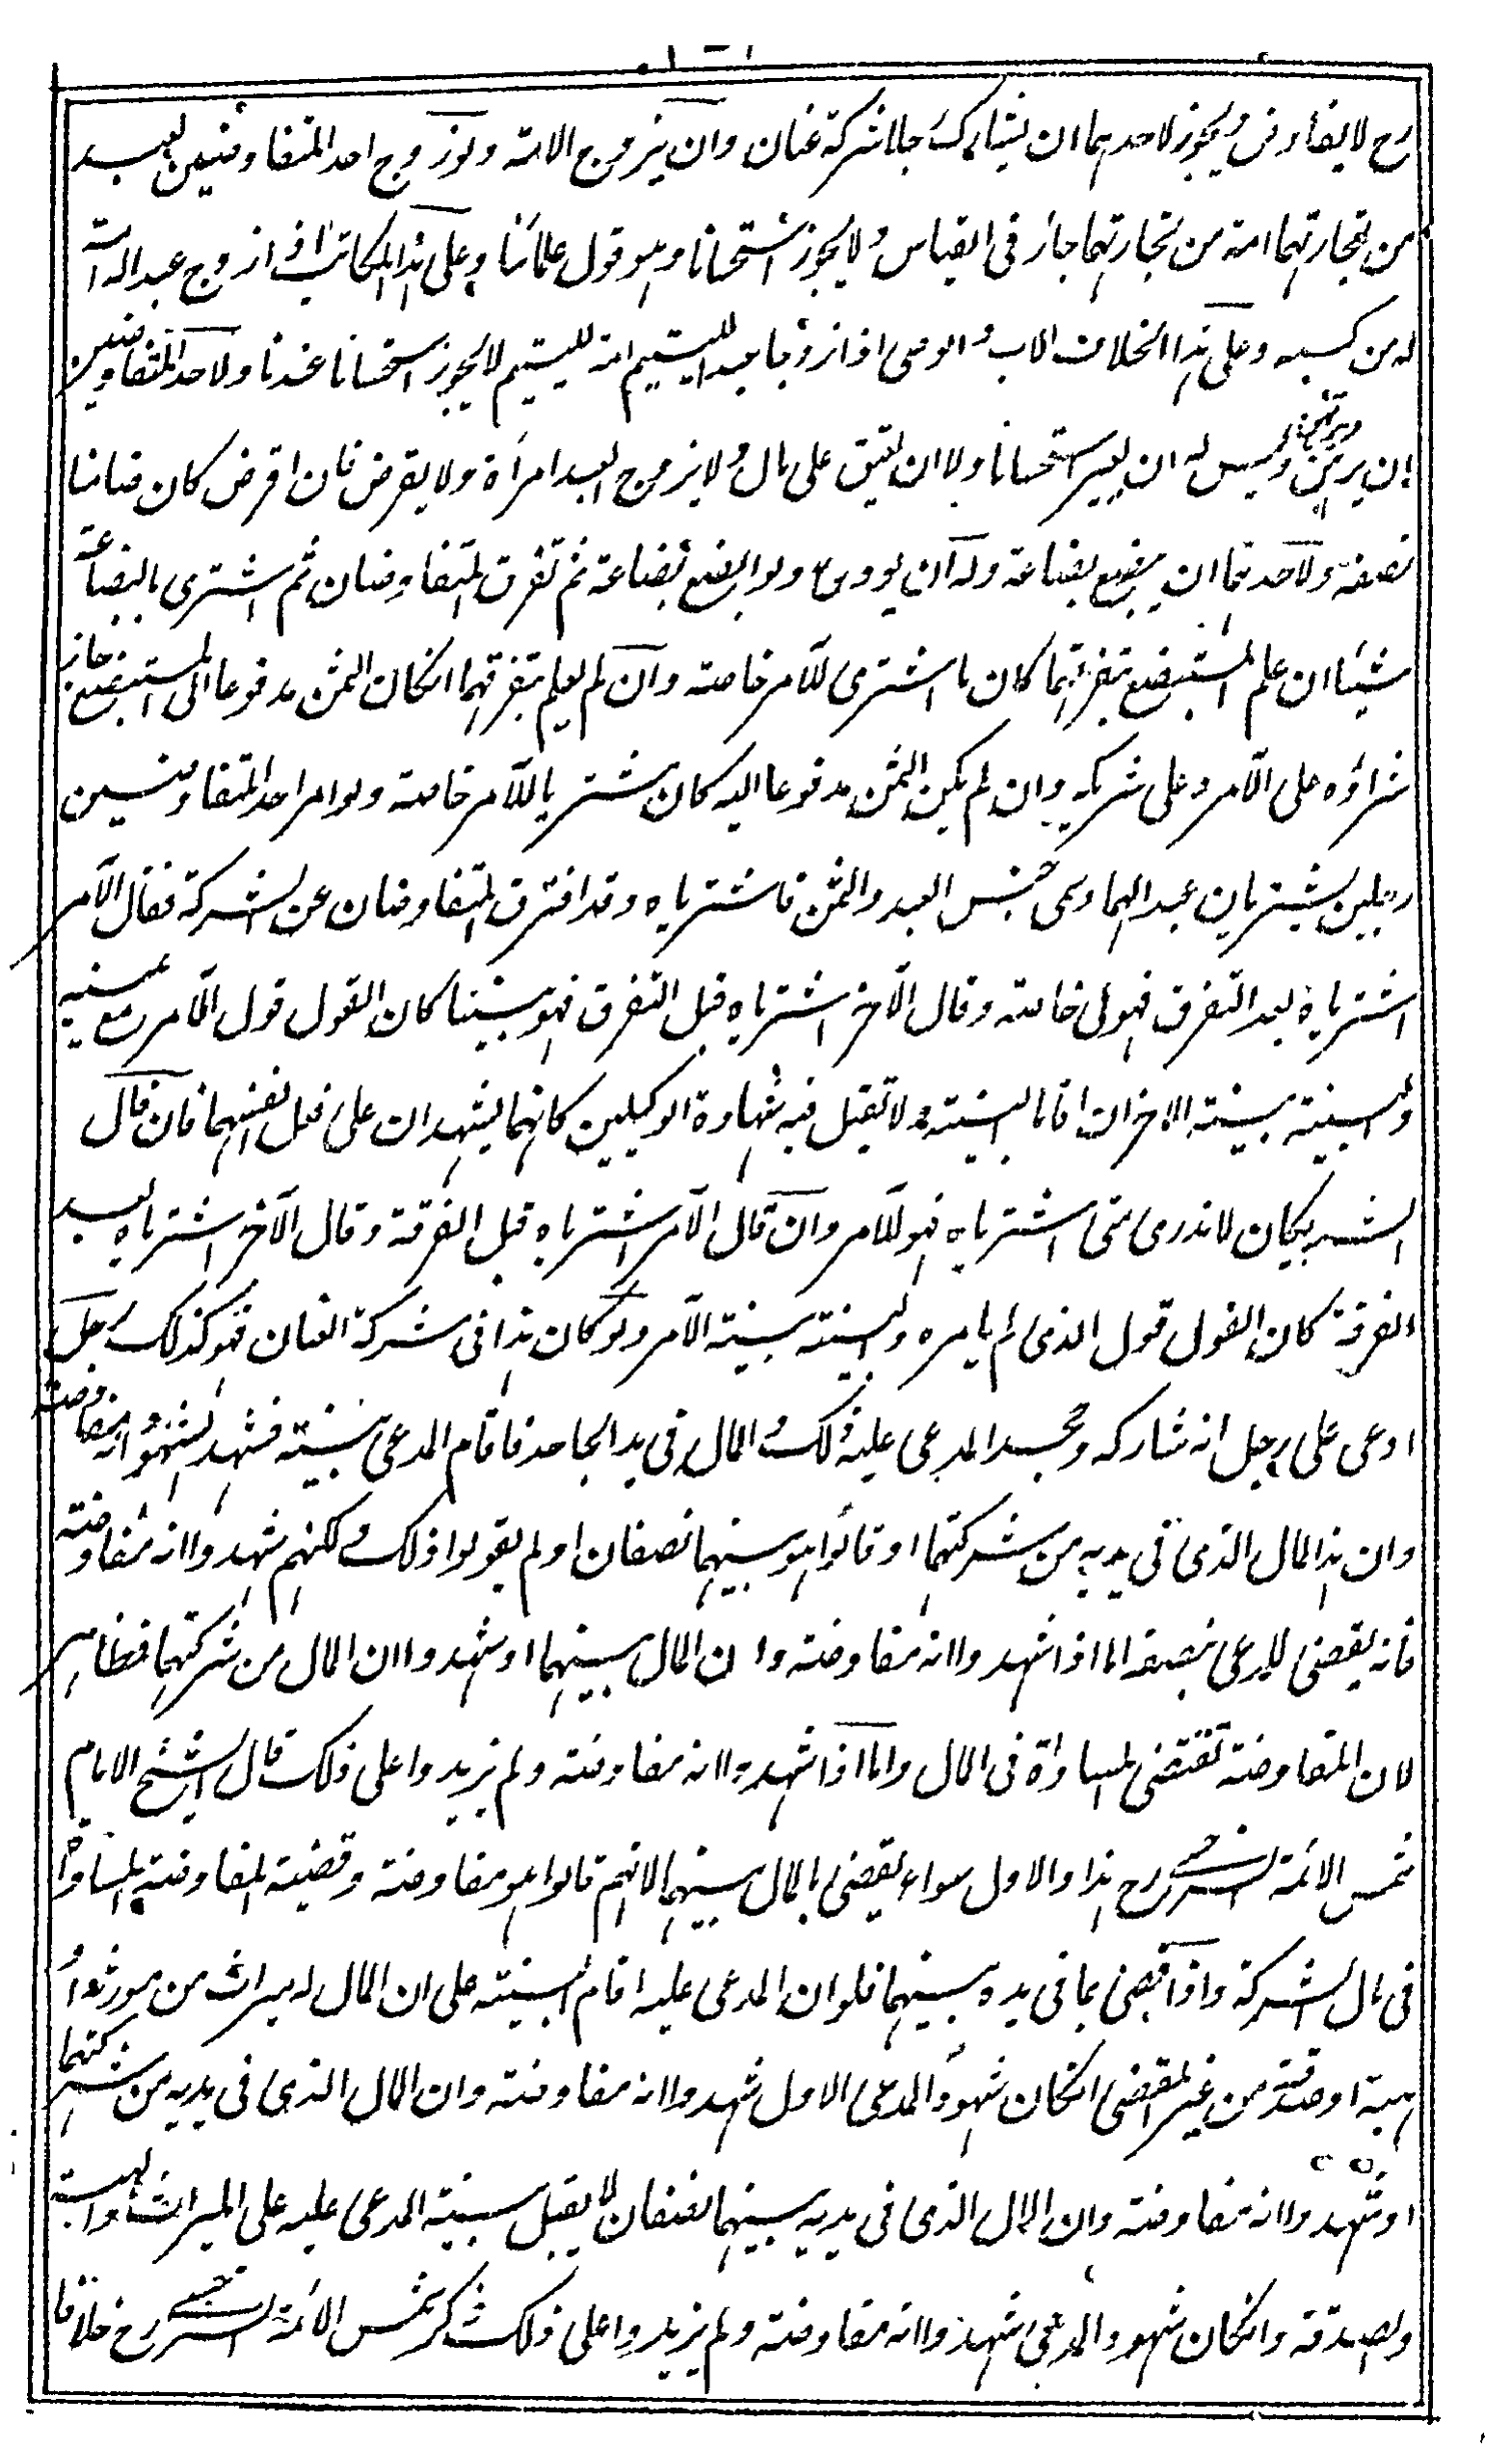 رح لا يفاوض ويجوز لاحدهما ان يشارك رجلا شركة عنان وان يزوج الامة ولو زوج احد المتفاوضين لعبد
من تجارتهما امة من تجارتهما جاز فى القياس ولا يجوز استحسانا وهو قول علمائنا وعلى هذا المكاتب اذا زوج عبدا له امة
له من كسبه وعلى هذا الخلاف الاب والوصى اذا زوجا عبد اليتيم امة لليتيم لا يجوز استحسانا عندنا ولاحد المتفاوضين
ان يرهن ويرتهن وليس له ان يعير استحسانا ولا ان يعتق على مال ولا يزوج العبد امرأة ولا يقرض فان اقرض كان ضامنا
نصفه ولاحدهما ان يبضع بضاعة وله ان يودع ولو ابضع بضاعة ثم تفرق المتفاوضان ثم اشترى بالبضاعة
شيئا ان علم المستبضع بتفرقهما كان ما اشترى للآمر خاصة وان لم يعلم بتفرقهما انكان الثمن مدفوعا الى المستبضع جاز
شراؤه على الآمر وعلى شريكه وان لم يكن الثمن مدفوعا اليه كان مشتريا للآمر خاصة ولو امر احد المتفاوضين
رجلين يشتريان عبدا لهما وسمى جنس العبد والثمن فاشترياه وقد افترق المتفاوضان عن الشركة فقال الآمر
اشترياه بعد التفرق فهو لى خاصة وقال الآخر اشترياه قبل التفرق فهو بيننا كان القول قول الآمر مع يمينه
والبينة بينة الاخر ان اقاما البينة ولا تقبل فيه شهادة الوكيلين كانهما يشهدان على فعل انفسهما فان قال
الشريكان لا ندرى متى اشترياه فهو للآمر وان قال الآمر اشترياه قبل الفرقة وقال الآخر اشترياه بعد
الفرقة كان القول قول الذى لم يامره والبينة بينة الآمر ولو كان هذا فى شركة العنان فهو كذلك رجل
ادعى على رجل انه شاركه وجحد المدعى عليه ذلك والمال فى يد الجاحد فاقام المدعى بينة فشهد الشهود انه مفاوضه
وان هذا المال الذى فى يديه من شركتهما او قالوا هو بينهما نصفان او لم يقولوا ذلك ولكنهم شهدوا انه مفاوضته
فانه يقضى للمدعى بنصفه اما اذا شهدوا انه مفاوضته وان المال بينهما او شهدوا ان المال من شركتهما فظاهر
لان المفاوضة تقتضى المساواة فى المال واما اذا شهدوا انه مفاوضته ولم يزيدوا على ذلك قال الشيخ الامام
شمس الائمة السرخسى رح هذا والاول سواء يقضى بالمال بينهما لانهم قالوا هو مفاوضته وقضية المفاوضة المساواة
فى مال الشركة واذا قضى بما فى يده بينهما فلو ان المدعى عليه اقام البينة على ان المال له ميراث من مورثه او
هبة او صدقة من غير المقضى انكان شهود المدعى الاول شهدوا انه مفاوضته وان المال الذى فى يديه من شركتهما
او شهدوا انه مفاوضته وان المال الذى فى يديه بينهما نصفان لا يقبل بينة المدعى عليه على الميراث والهبة
والصدقة وانكان شهود المدعى شهدوا انه مفاوضته ولم يزيدوا على ذلك ذكر شمس الائمة السرخسى رح خلافا